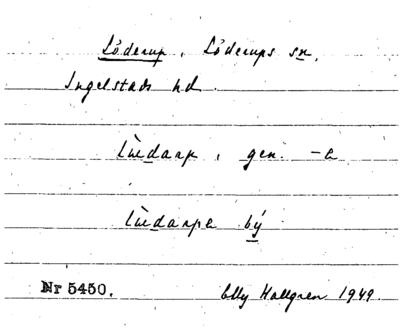 Löderup, Löderups sn,
Ingelstads hd.
lùedarp, gen. -a
lùedarpa bý
Nr 5450. Elly Hallgren 1949.